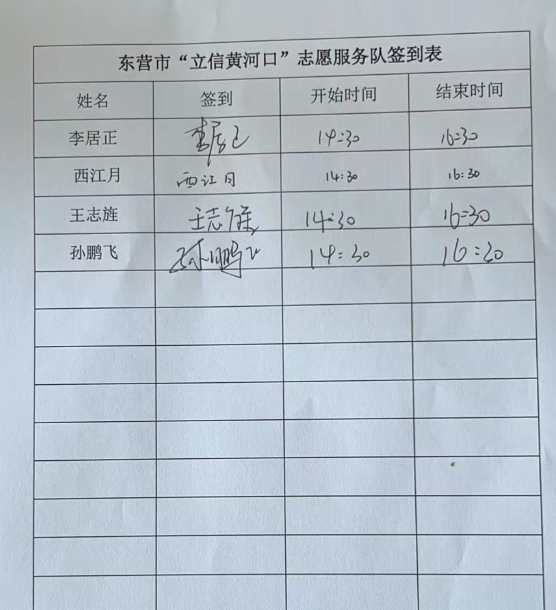 东营市“立信黄河口”志愿服务队签到表
姓名 签到 开始时间 结束时间
李居正 李居正 14:30 16:30
西江月 西江月 14:30 16:30
王志旌 王志旌 14:30 16:30
孙鹏飞 孙鹏飞 14:30 16:30